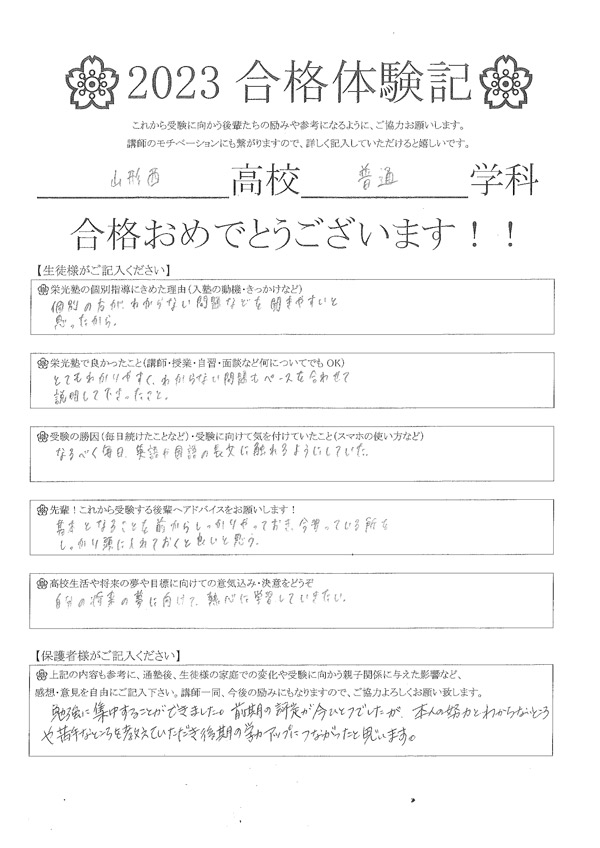 2023 合格体験記
これから受験に向かう後輩たちの励みや参考になるように、ご協力お願いします。
講師のモチベーションにも繋がりますので、詳しく記入していただけると嬉しいです。
山形西 高校 普通 学科
合格おめでとうございます！！
【生徒様がご記入ください】
栄光塾の個別指導にきめた理由(入塾の動機・きっかけなど)
個別の方が、わからない問題などを聞きやすいと
思ったから。
栄光塾で良かったこと(講師・授業・自習・面談など何についてでも OK)
とてもわかりやすく、わからない問題もペースを合わせて
説明して下さったこと。
受験の勝因(毎日続けたことなど)・受験に向けて気を付けていたこと(スマホの使い方など)
なるべく毎日、英語や国語の長文に触れるようにしていた。
先輩！これから受験する後輩へアドバイスをお願いします！
基本となることを前からしっかりやっておき、今習っている所を
しっかり頭に入れておくと良いと思う。
高校生活や将来の夢や目標に向けての意気込み・決意をどうぞ
自分の将来の夢に向けて、熱心に学習していきたい。
【保護者様がご記入ください】
上記の内容も参考に、通塾後、生徒様の家庭での変化や受験に向かう親子関係に与えた影響など、
感想・意見を自由にご記入下さい。講師一同、今後の励みにもなりますので、ご協力よろしくお願い致します。
勉強に集中することができました。前期の評定が今ひとつでしたが、本人の努力とわからないところ
や苦手なところを教えていただき後期の学力アップにつながったと思います。